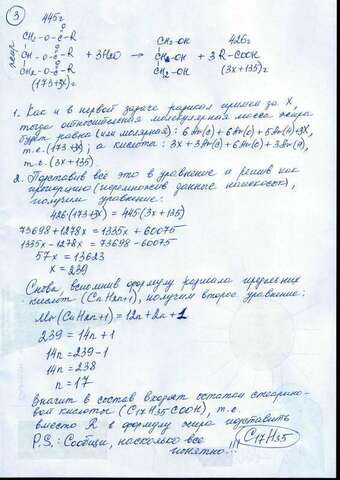 3
445г
O
CH2-O-C-R CH2-OH 426г
жир CH-O-C-R + 3H2O → CH-OH + 3R-COOH
CH2-O-C-R CH2-OH (3x+135)г
(173+3x)г
1. Как и в первой задаче радикал примем за X,
тогда относительная молекулярная масса жира
будет равна (или молярная): 6Ar(C)+6Ar(O)+5Ar(H)+3X,
т.е. (173+3x); а кислота: 3x+3Ar(C)+6Ar(O)+3Ar(H),
т.е. (3x+135)
2. Подставив всё это в уравнение и решив как
пропорцию (перемножив данные наискосок),
получим уравнение:
426(173+3x) = 445(3x+135)
73698+1278x = 1335x+60075
1335x-1278x = 73698-60075
57x = 13623
x = 239
Снова, вспомнив формулу радикала предельных
кислот (CnH2n+1), получим второе уравнение:
Mr(CnH2n+1) = 12n+2n+1
239 = 14n+1
14n = 239-1
14n = 238
n = 17
Значит в состав входят остатки стеарино-
вой кислоты (C17H35COOH), т.е.
вместо R в формулу жира подставить
C17H35
P.S.: Сообщи, насколько всё
понятно...!!!